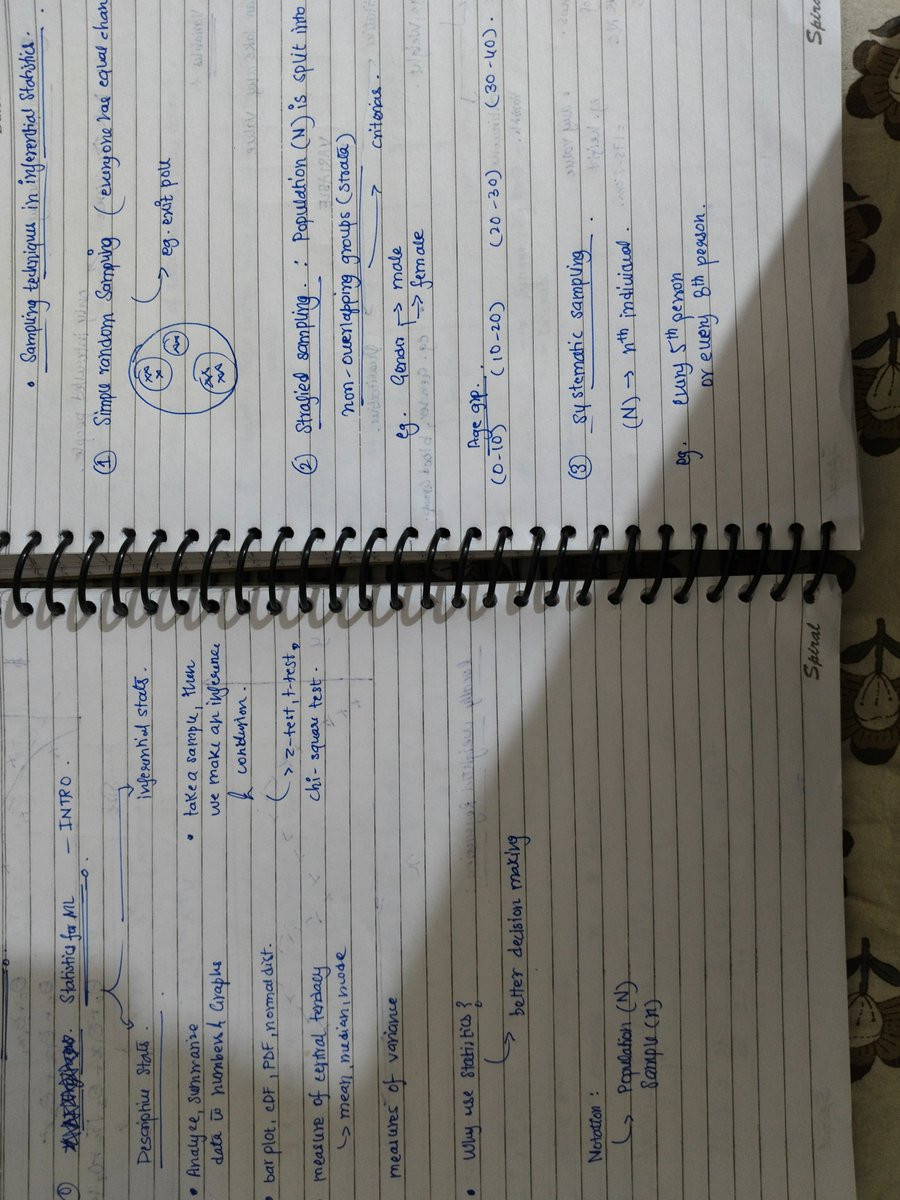 ① Statistics for ML - INTRO.
Descriptive stats.
• Analyze, summarize
data in numbers & Graphs
• bar plot, CDF, PDF, normal dist.
measure of central tendacy
↳ mean, median, mode
measures of variance
inferential stats.
• take a sample, then
we make an inference
& conclusion.
↳ z-test, t-test,
chi-square test.
• Why use Statistics?
↳ better decision making
Notation:
↳ Population (N)
Sample (n)
Spiral
• Sampling techniques in inferential Statistics.
① Simple random Sampling (everyone has equal chan
↳ eg. exit poll
② Strafied sampling : Population (N) is split into
non-overlapping groups (strata)
→ criterias.
eg. Gender → male
→ female
Age grp.
(0-10) (10-20) (20-30) (30-40).
③ Systematic sampling.
(N) → nth individual.
eg. every 5th person
or every 8th person.
Spiral